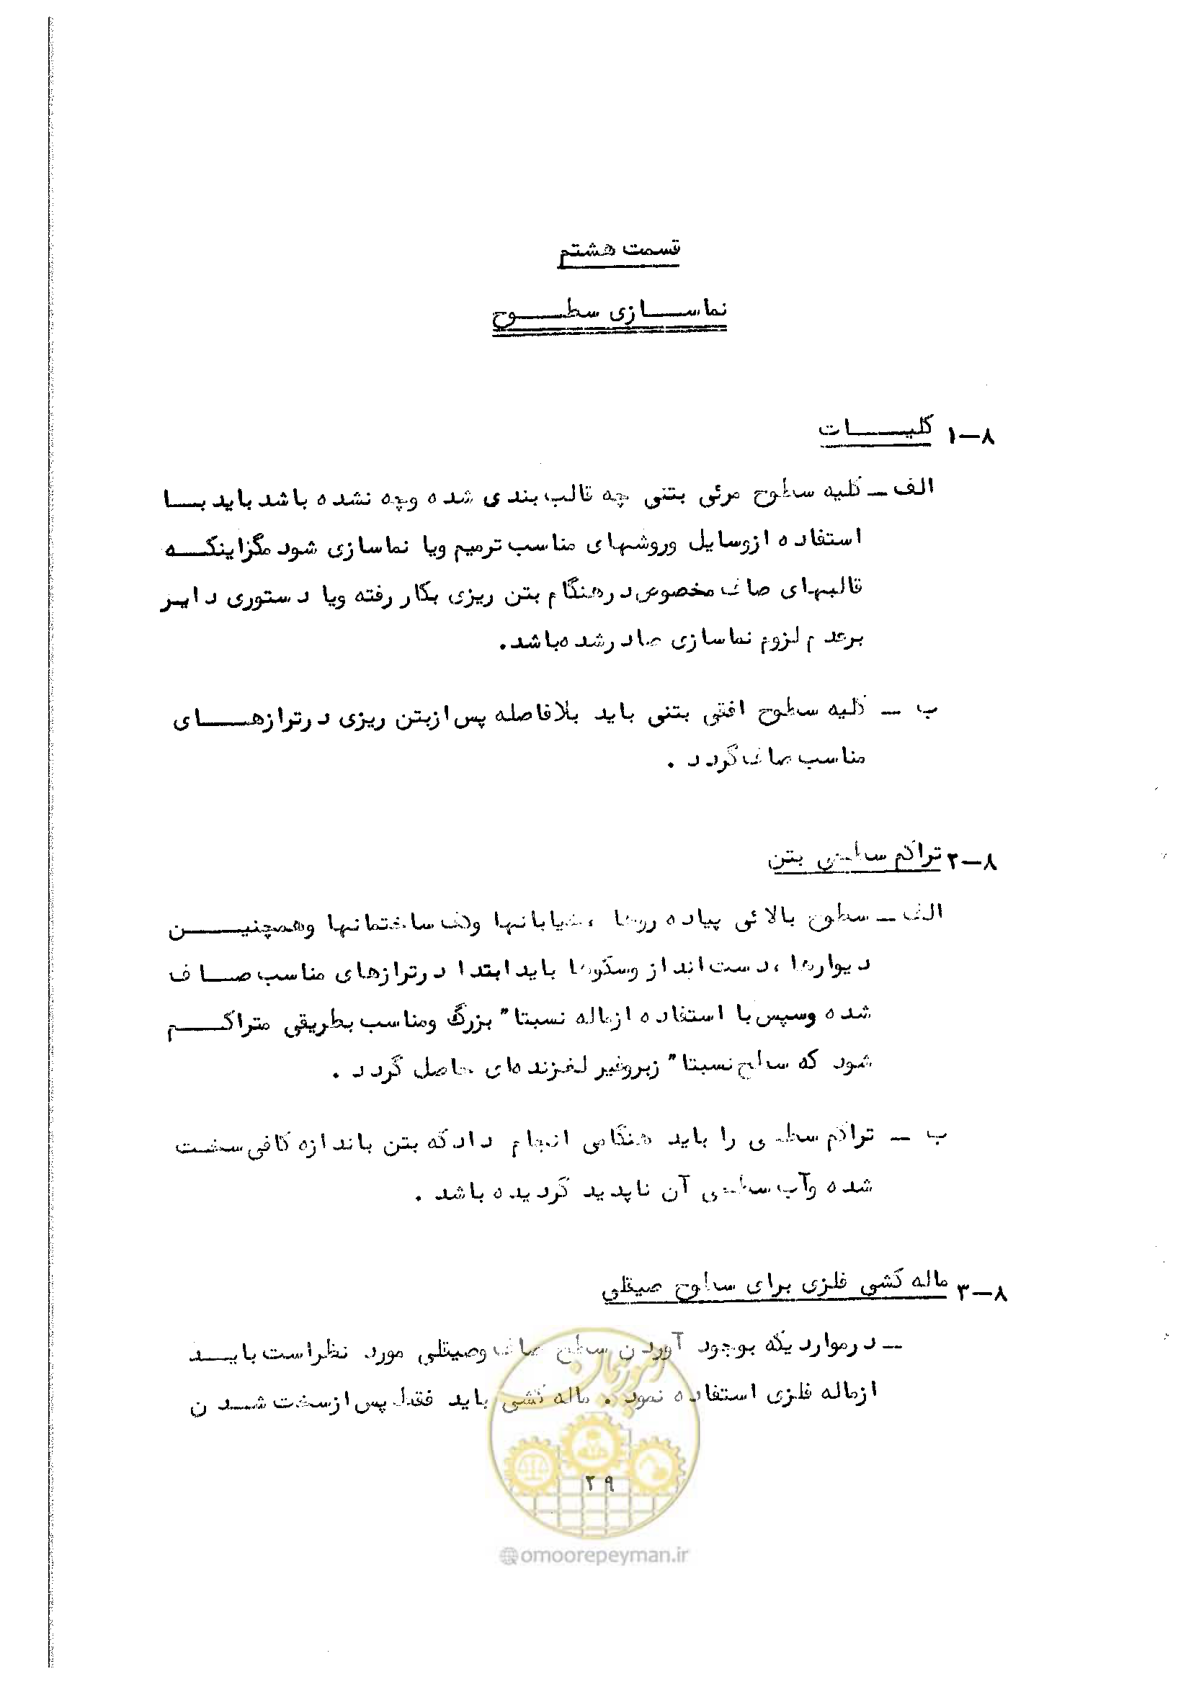 قسمت هشتم
نماسازی سطوح
۸–۱ کلیات
الف – کلیه سطوح مرئی بتنی چه قالب بندی شده وچه نشده باشد باید با
استفاده ازوسایل وروشهای مناسب ترمیم ویا نماسازی شود مگراینکه
قالبهای صاف مخصوص درهنگام بتن ریزی بکار رفته ویا دستوری دایر
برعدم لزوم نماسازی صادرشده باشد.
ب – کلیه سطوح افقی بتنی باید بلافاصله پس ازبتن ریزی درترازهای
مناسب صاف گردد .
۸–۲ تراکم سطحی بتن
الف – سطوح بالائی پیاده روها ، خیابانها وکف ساختمانها وهمچنین
دیوارها ، دست انداز وسکوها باید ابتدا درترازهای مناسب صاف
شده وسپس با استفاده ازماله نسبتا" بزرگ ومناسب بطریقی متراکم
شود که سطح نسبتا" زبروغیر لغزنده ای حاصل گردد .
ب – تراکم سطحی را باید هنگامی انجام دادکه بتن باندازه کافی سخت
شده وآب سطحی آن ناپدید گردیده باشد .
۸–۳ ماله کشی فلزی برای سطوح صیقلی
– درمواردیکه بوجود آوردن سطح صاف وصیقلی مورد نظراست باید
ازماله فلزی استفاده نمود . ماله کشی باید فقط پس ازسخت شدن
۲۹
امور پیمان
@omoorepeyman.ir